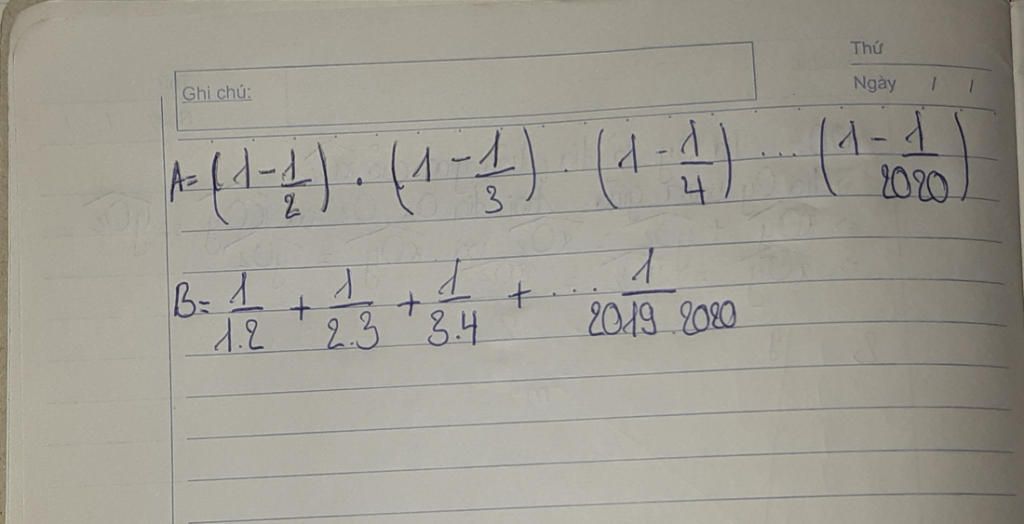 Thứ
Ghi chú:
Ngày / /
A = (1 - 1/2) . (1 - 1/3) . (1 - 1/4) ... (1 - 1/2020)
B = 1/1.2 + 1/2.3 + 1/3.4 + ... 1/2019.2020